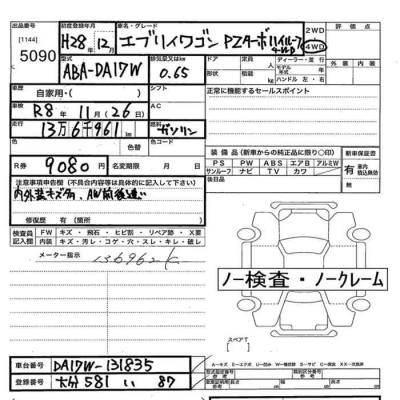 出品番号
[1144]
5090
初度登録年月
H28年 12月
車名・グレード
エブリイワゴン PZターボハイルーフ 4WD
2WD
4WD
評価点
型式
ABA-DA17W
排気量又はkW
0.65
ドア・形状
D
積載量
kg
定員
ディーラー・並行
モデル年式
ハンドル 左・右
外装
内装
車歴
自家用・( )
シフト
正常に機能するセールスポイント
車検
R8年 11月(26日)
AC
走行
13万6千961km
燃料
ガソリン
色
色替
装備品(新車からの純正品に限り〇印)
新車保証書
PS PW ABS エアB アルミW
サンルーフ ナビ TV カワ
有
車内積込無効
R券
9080円
名変期限 月 日
注意事項申告欄(不具合内容等は具体的に記入して下さい)
内外装キズ多、AW前後違い
修復歴 有(箇所)
検査員記入欄
FW キズ・飛石・ヒビ割・リペア跡・X要
内装 キズ・汚レ・コゲ・穴・スレ・キレ・破レ
メーター指示
136962k
ノー検査・ノークレーム
スペアT
車台番号
DA17W-131835
登録番号
大分581 い 87
型式指定番号
類別区分番号
長さ cm
幅 cm
高さ cm